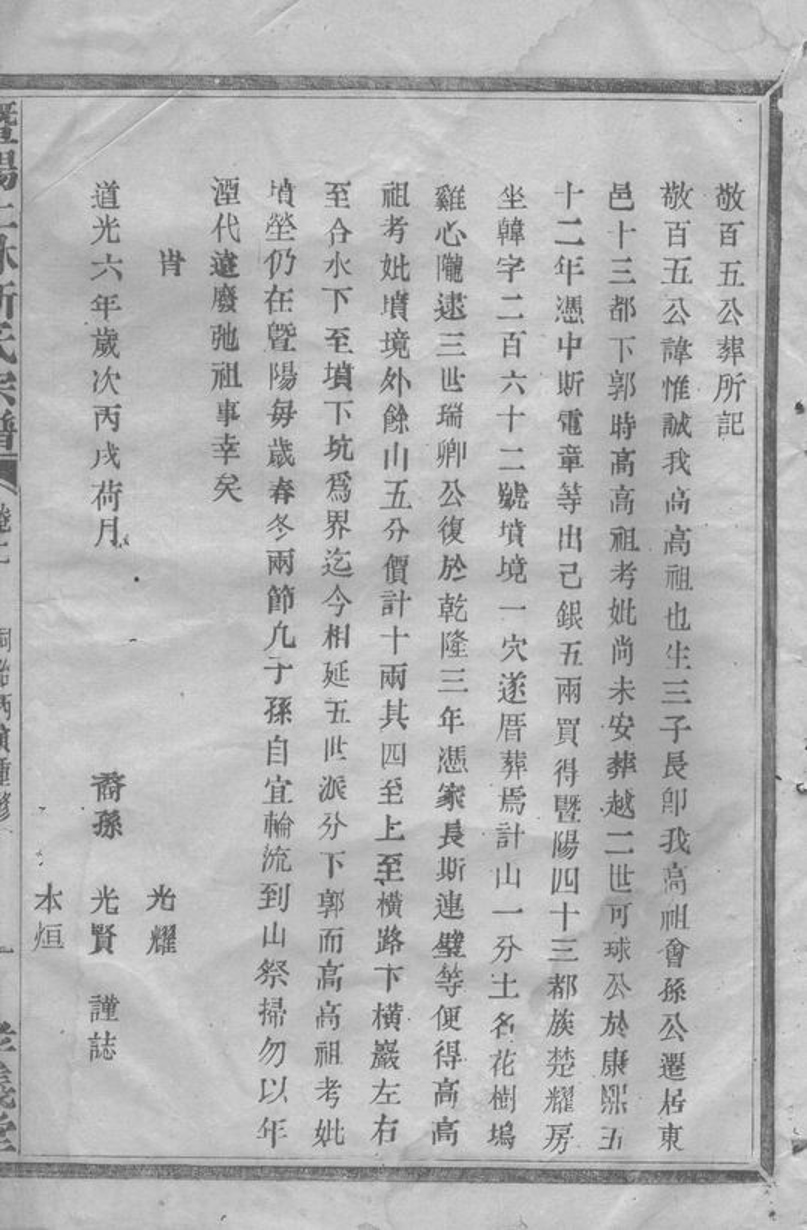 敬百五公葬所記
敬百五公諱惟誠我高高祖也生三子長卽我高祖會孫公遷居東
邑十三都下郭時高高祖考妣尚未安葬越二世可球公於康熙五
十二年憑中斯電章等出己銀五兩買得暨陽四十三都族楚耀房
坐韓字二百六十二號墳境一穴遂厝葬焉計山一分土名花樹塢
雞心隴逮三世瑞卿公復於乾隆三年憑家長斯連璧等便得高高
祖考妣墳境外餘山五分價計十兩其四至上至橫路下橫巖左右
至合水下至墳下坑爲界迄今相延五世派分下郭而高高祖考妣
墳塋仍在暨陽每歲春冬兩節凡子孫自宜輪流到山祭掃勿以年
湮代遠廢弛祖事幸矣
旹
道光六年歲次丙戌荷月
光耀
裔孫 光賢 謹誌
本烜
暨陽上林斯氏宗譜
一
孝義堂